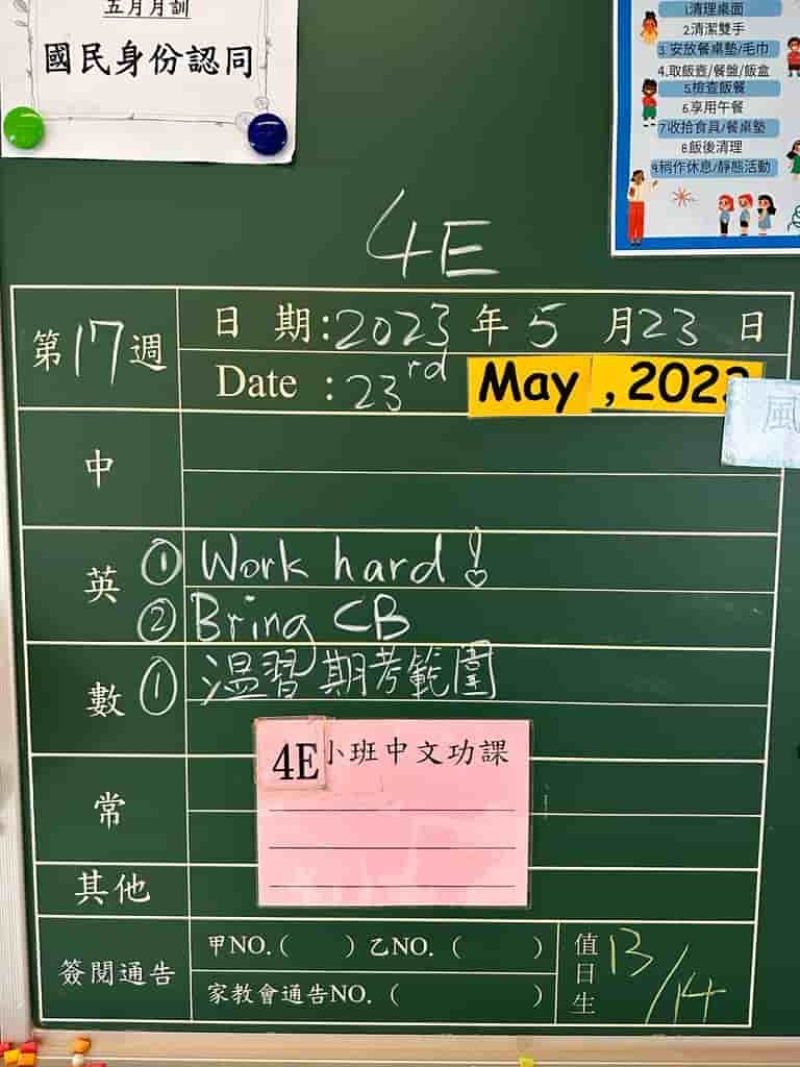 五月月訓
國民身份認同
1清理桌面
2清潔雙手
3.安放餐桌墊/毛巾
4.取飯壺/餐盤/飯盒
5檢查飯餐
6.享用午餐
7收拾食具/餐桌墊
8飯後清理
9稍作休息/靜態活動
4E
第17週
日 期:2023年5月23日
Date :23rd May ,2023
風
中
英 ① Work hard!
② Bring CB
數 ① 溫習期考範圍
4E小班中文功課
常
其他
簽閱通告
甲NO.( )乙NO.( )
家教會通告NO.( )
值日生 13/14